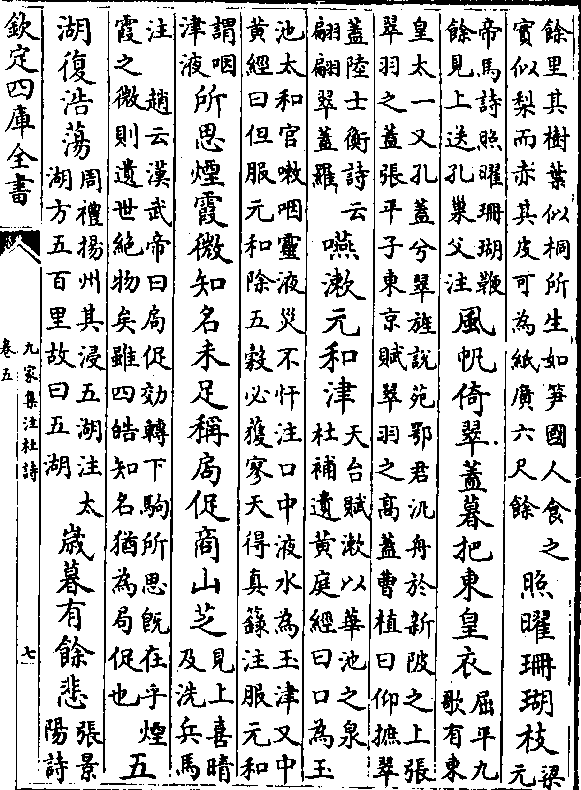 餘里其樹葉似桐所生如笋國人食之實似梨而赤其皮可為紙廣六尺餘照曜珊瑚枝梁元
帝馬詩照曜珊瑚鞭餘見上送孔巢父注風帆倚翠蓋暮把東皇衣屈平九歌有東
皇太一又孔蓋兮翠旌說苑鄂君汎舟於新陂之上張翠羽之蓋張平子東京賦翠羽之高蓋曹植曰仰撫翠
蓋陸士衡詩云翩翩翠蓋羅嚥漱元和津天台賦漱以華池之泉杜補遺黄庭經曰口為玉
池太和官嗽咽靈液災不忓注口中液水為玉津又中黄經曰但服元和除五穀必獲寥天得真籙注服元和
謂咽津液所思煙霞微知名未足稱局促商山芝見上喜晴及洗兵馬
注 趙云漢武帝曰局促効轉下駒所思旣在乎煙霞之微則遺世絶物矣雖四皓知名猶為局促也五
湖復浩蕩周禮揚州其浸五湖注太湖方五百里故曰五湖歲暮有餘悲張景陽詩
欽定四庫全書
九家集注杜詩
卷五
七